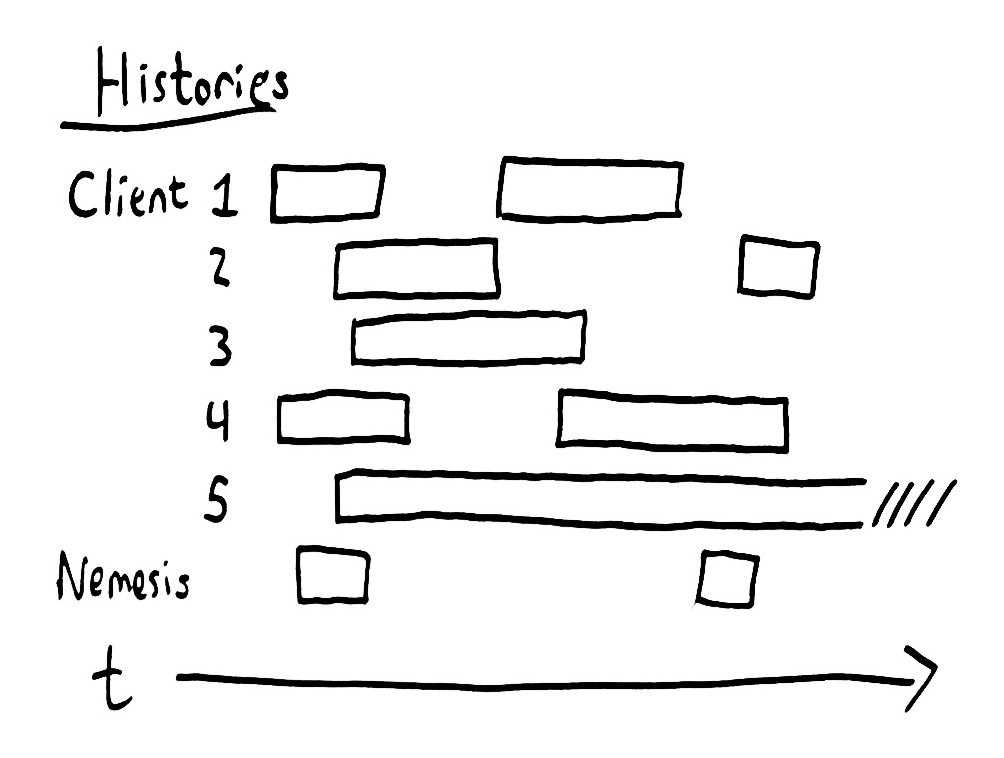 Histories
Client 1
2
3
4
5
Nemesis
t